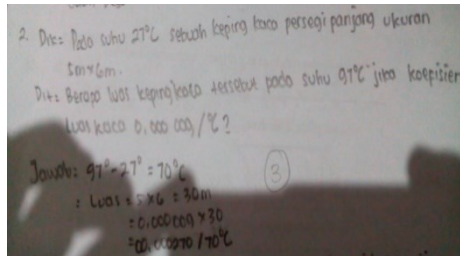 2. Dik: Pada suhu 27°C sebuah keping kaca persegi panjang ukuran
5m x 6m.
Dit: Berapa luas keping kaca tersebut pada suhu 97°C jika koefisien
Luas kaca 0,000 009/°C?
Jawab: 97°-27° = 70°C
= Luas = 5x6 = 30m
③
= 0,000009 x 30
= 00,000270 / 70°C